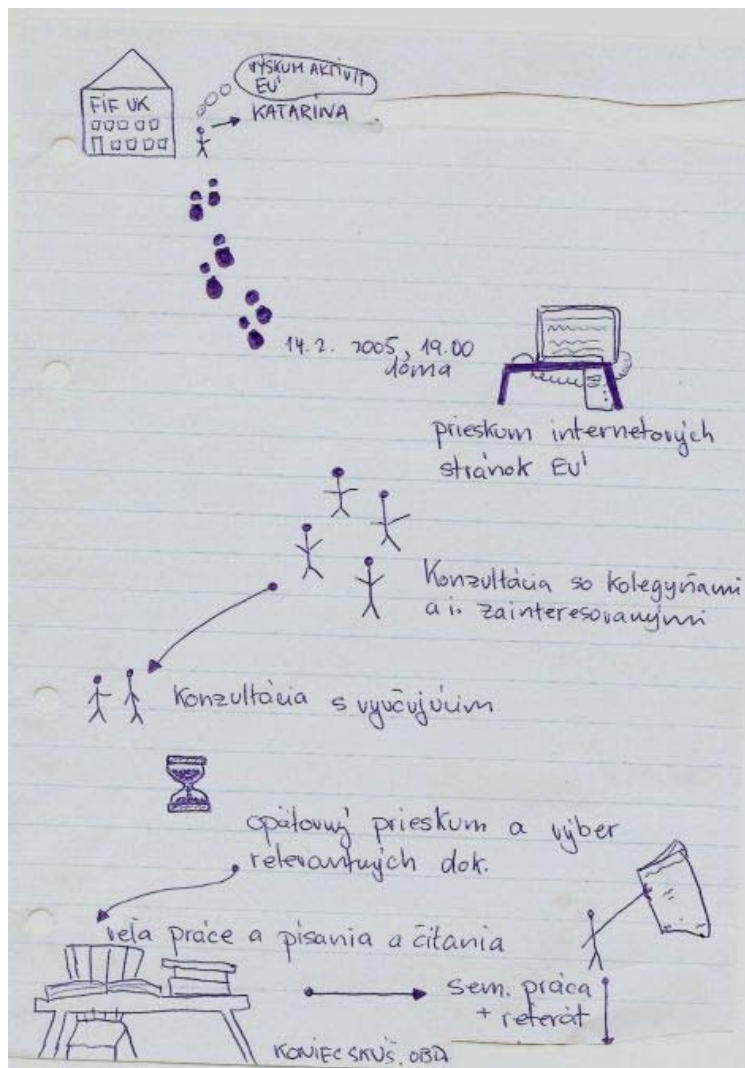 VÝSKUM AKTIVÍT
EÚ
FIF UK
KATARÍNA
14.2. 2005, 19.00
doma
prieskum internetových
stránok EÚ
Konzultácia so kolegyňami
a i. zainteresovanými
Konzultácia s vyučujúcim
opätovný prieskum a výber
relevantných dok.
veľa práce a písania a čítania
sem. práca
+ referát
KONIEC SKÚŠ. OBD.